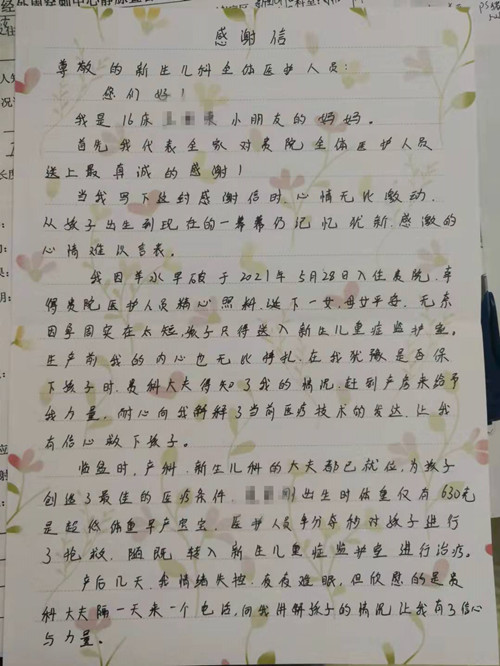 感谢信
尊敬的新生儿科全体医护人员:
您们好!
我是16床 小朋友的妈妈。
首先我代表全家对贵院全体医护人员
送上最真诚的感谢!
当我写下这封感谢信时,心情无比激动,
从孩子出生到现在的一幕幕仍记忆犹新,感激的
心情难以言表。
我因羊水早破于2021年5月28日入住贵院,幸
得贵院医护人员精心照料,诞下一女,母女平安,无奈
因孕周实在太短,孩子只得送入新生儿重症监护室。
生产前我的内心也无比挣扎,在我犹豫是否保
下孩子时,贵科大夫得知了我的情况,赶到产房来给予
我力量,耐心向我讲解了当前医疗技术的发达,让我
有信心救下孩子。
临盆时,产科、新生儿科的大夫都已就位,为孩子
创造了最佳的医疗条件, 出生时体重仅有630克
是超低体重早产宝宝,医护人员争分夺秒对孩子进行
了抢救,随既转入新生儿重症监护室进行治疗。
产后几天,我情绪失控,夜夜难眠,但欣慰的是贵
科大夫隔一天来一个电话,向我讲解孩子的情况,让我有了信心
与力量。